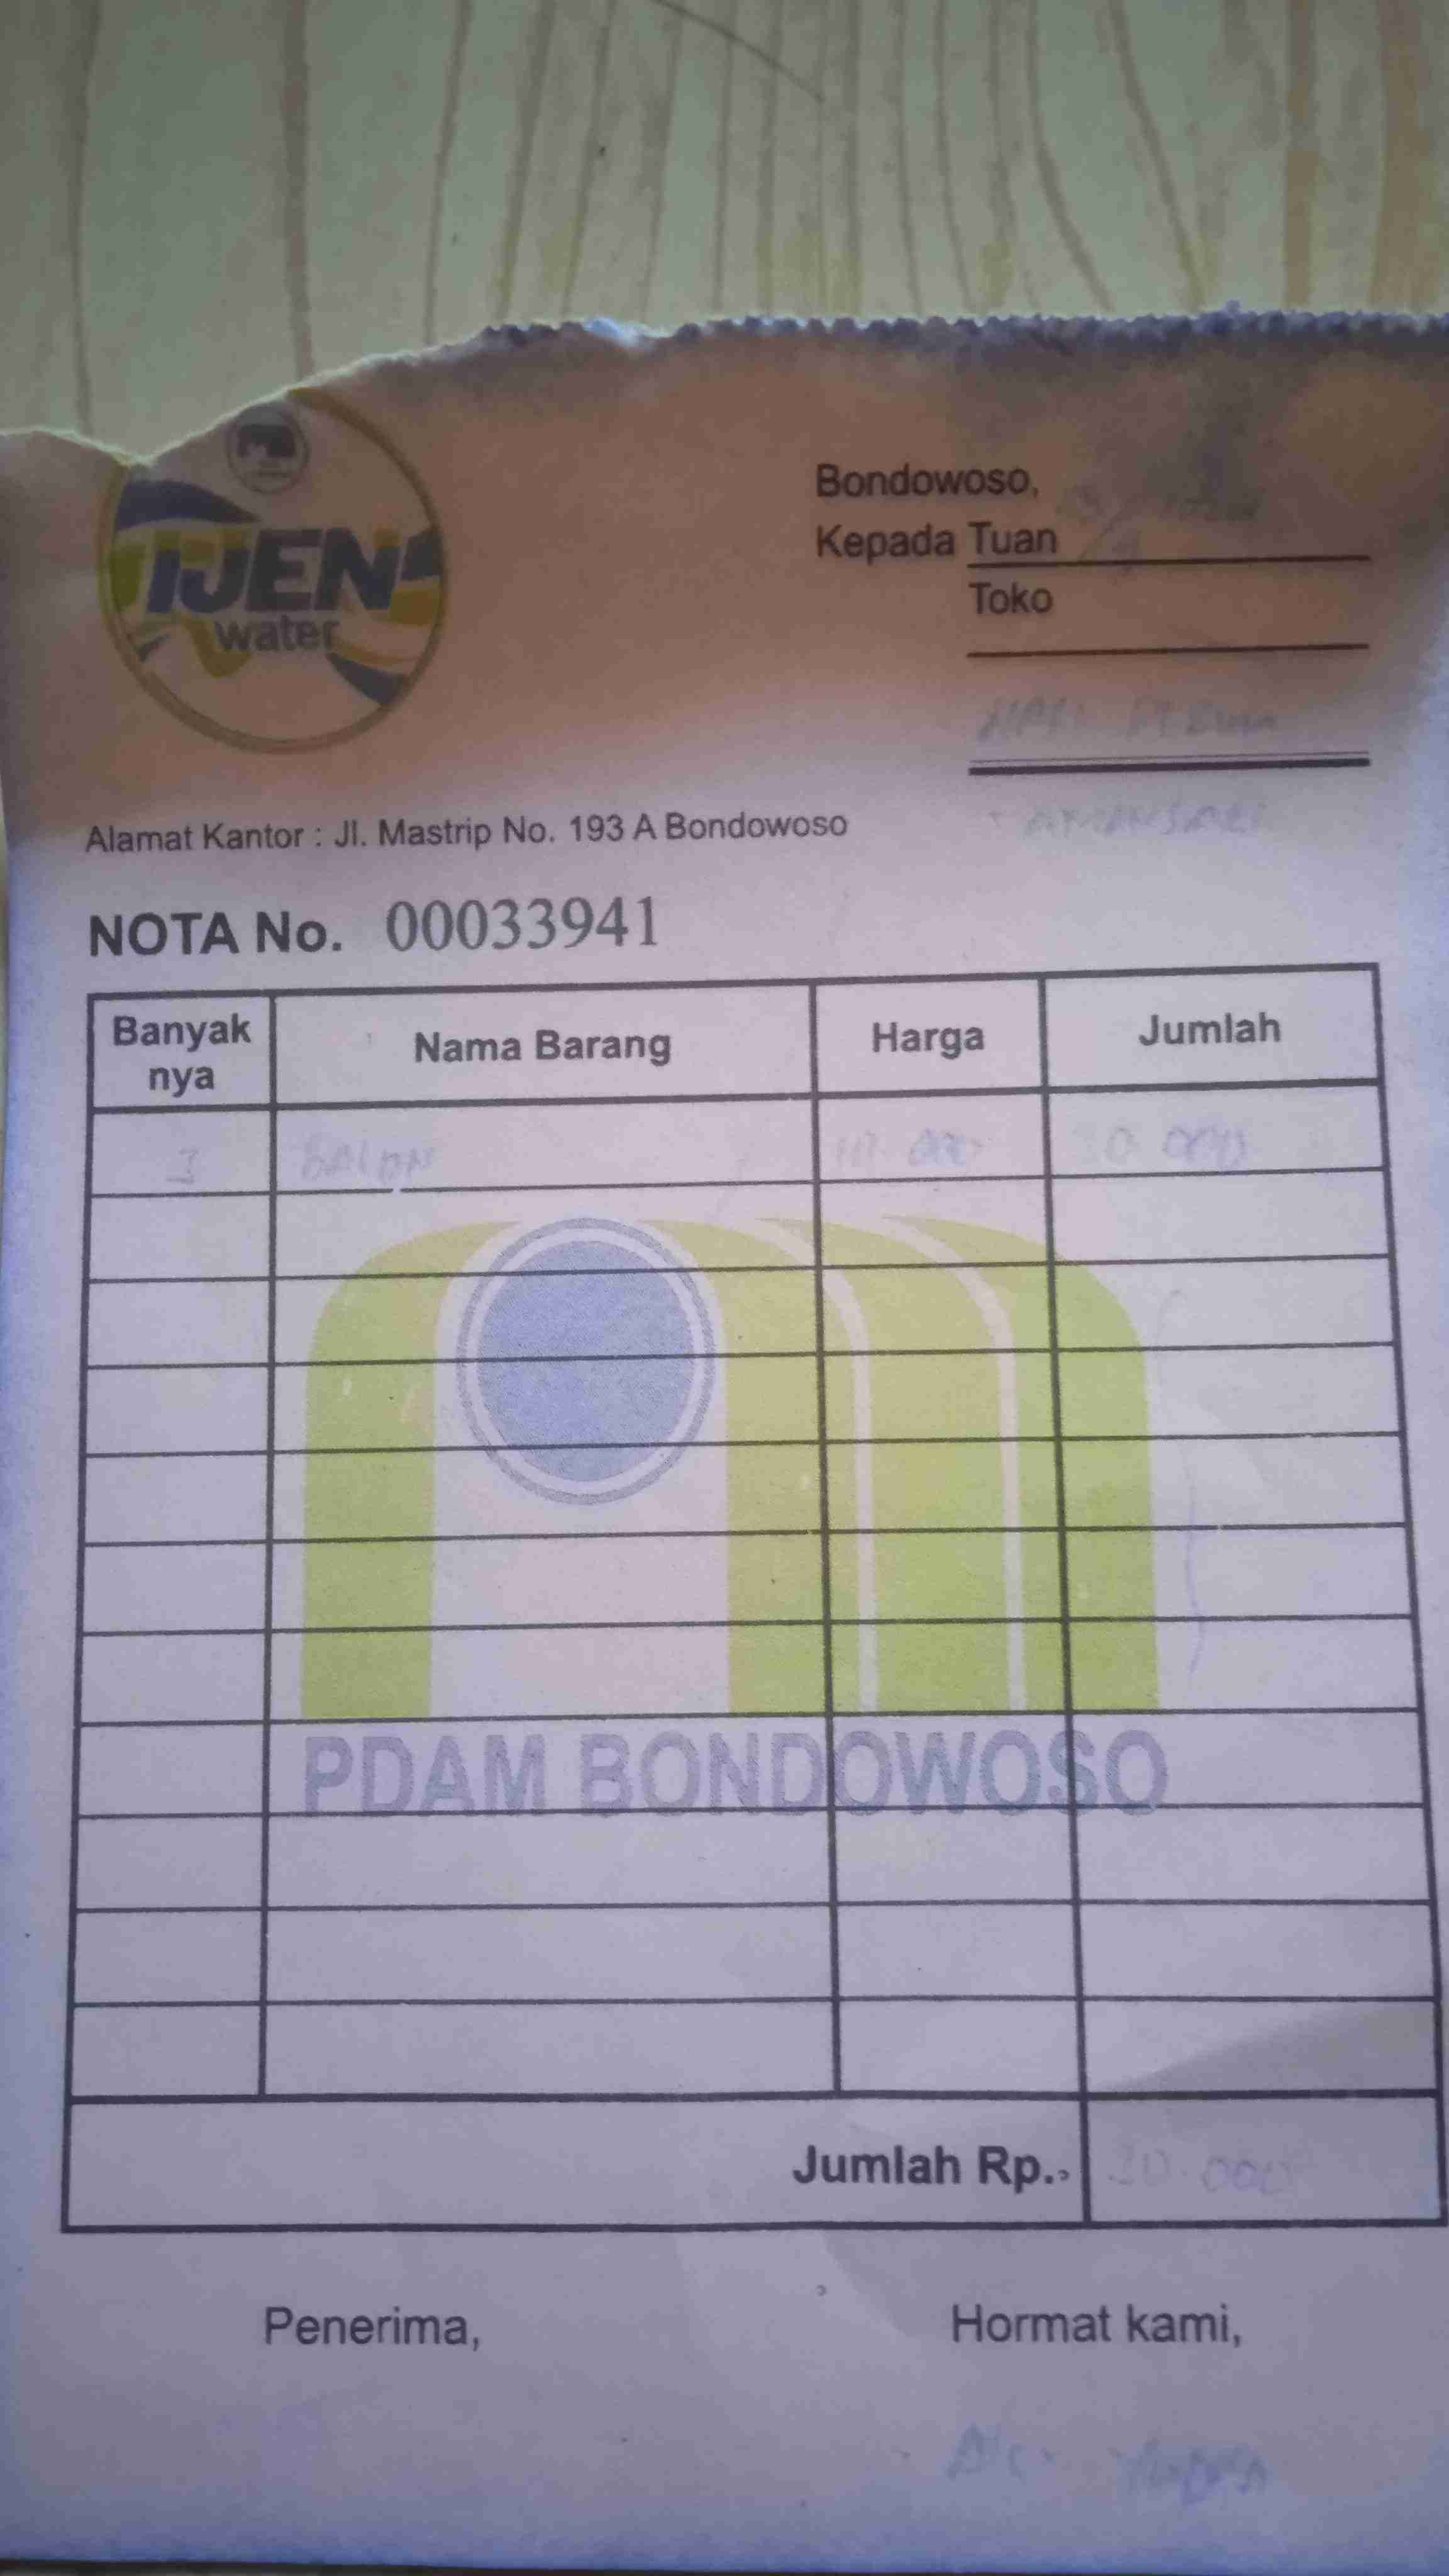 IJEN
water
Bondowoso,
Kepada Tuan
Toko
Alamat Kantor : Jl. Mastrip No. 193 A Bondowoso
NOTA No. 00033941
Banyak nya Nama Barang Harga Jumlah
3 000
PDAM BONDOWOSO
Jumlah Rp. 000
Penerima, Hormat kami,